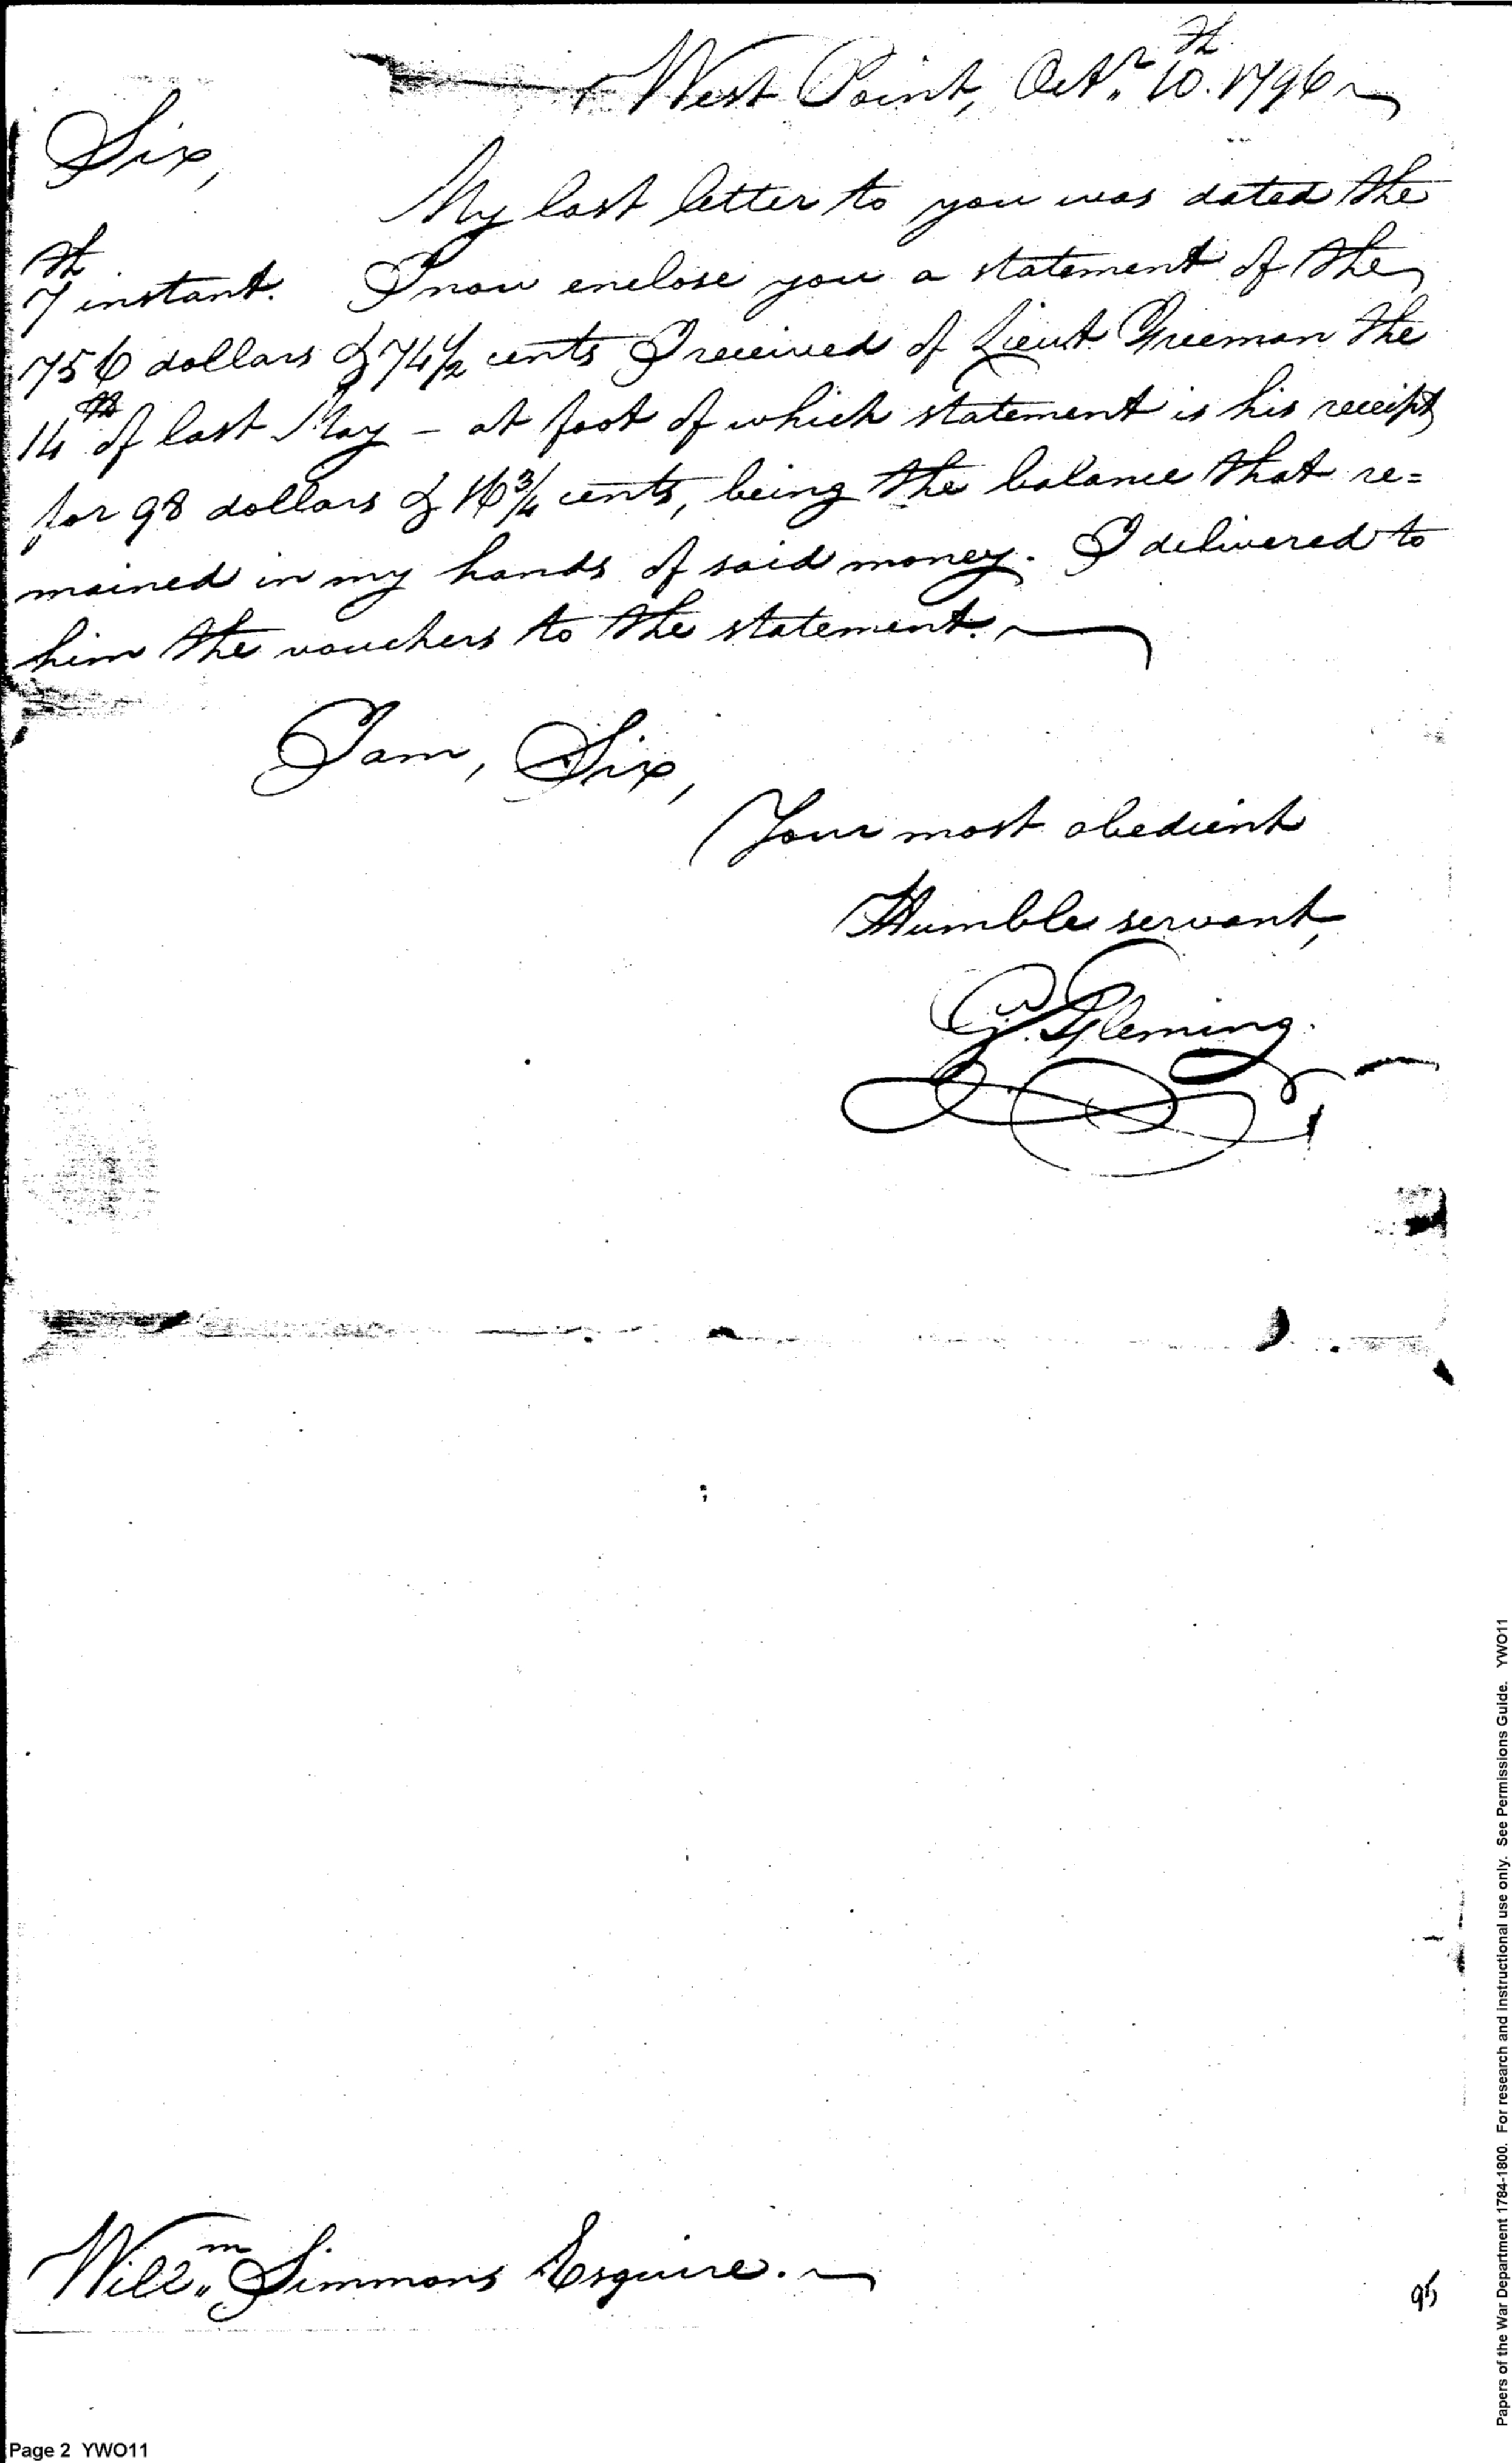 West Point, Octr. 10th. 1796
Sir,
My last letter to you was dated the
7th instant. I now enclose you a statement of the
756 dollars & 74 1/2 cents I received of Lieut Freeman the
14th of last May – at foot of which statement is his receipt
for 98 dollars & 16 3/4 cents, being the balance that re=
mained in my hands of said money. I delivered to
him the vouchers to the statement.
I am, Sir,
Your most obedient
Humble servant,
G. Fleming.
Willm Simmons Esquire.
95
Page 2 YWO11
Papers of the War Department 1784-1800. For research and instructional use only. See Permissions Guide. YWO11